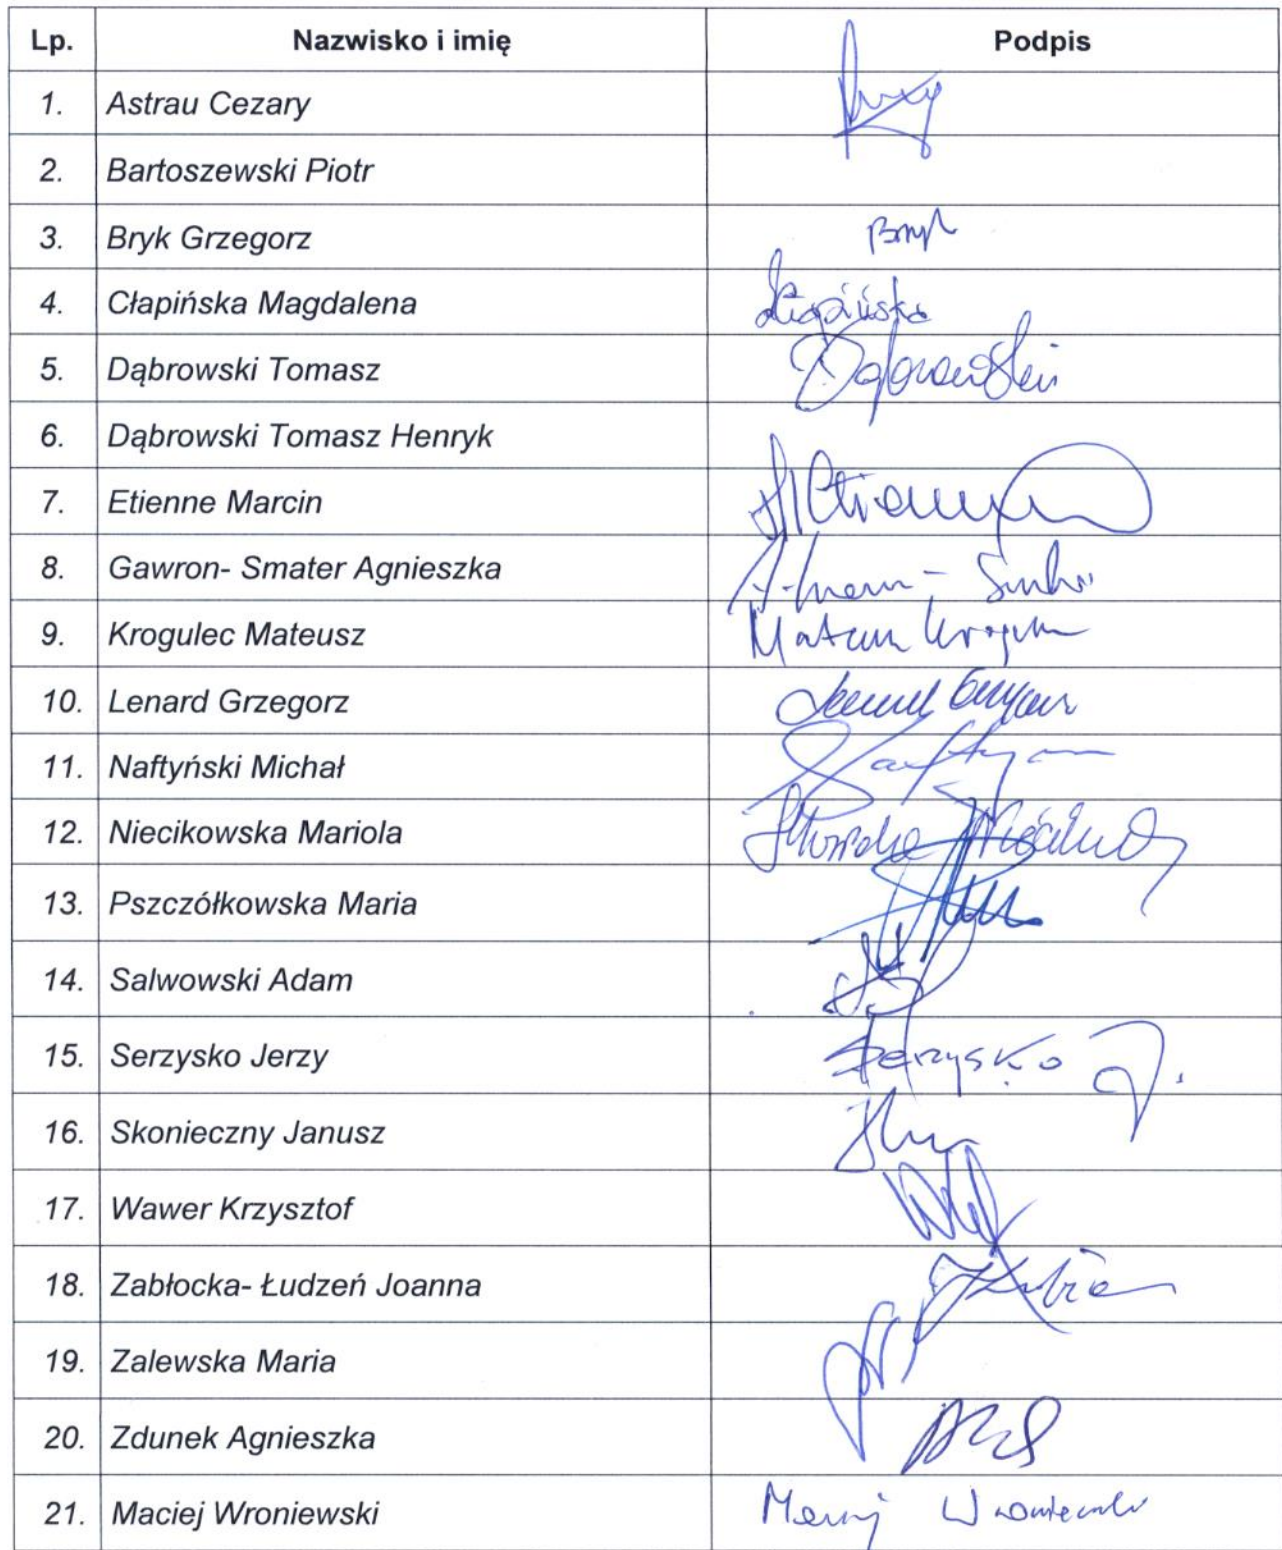 Lp. Nazwisko i imię Podpis
1. Astrau Cezary
2. Bartoszewski Piotr
3. Bryk Grzegorz Bryk
4. Cłapińska Magdalena Cłapińska
5. Dąbrowski Tomasz Dąbrowski
6. Dąbrowski Tomasz Henryk
7. Etienne Marcin
8. Gawron- Smater Agnieszka
9. Krogulec Mateusz Mateusz Krogulec
10. Lenard Grzegorz Lenard Grzegorz
11. Naftyński Michał
12. Niecikowska Mariola
13. Pszczółkowska Maria
14. Salwowski Adam
15. Serzysko Jerzy Serzysko J.
16. Skonieczny Janusz
17. Wawer Krzysztof
18. Zabłocka- Łudzeń Joanna
19. Zalewska Maria
20. Zdunek Agnieszka
21. Maciej Wroniewski Maciej Wroniewski